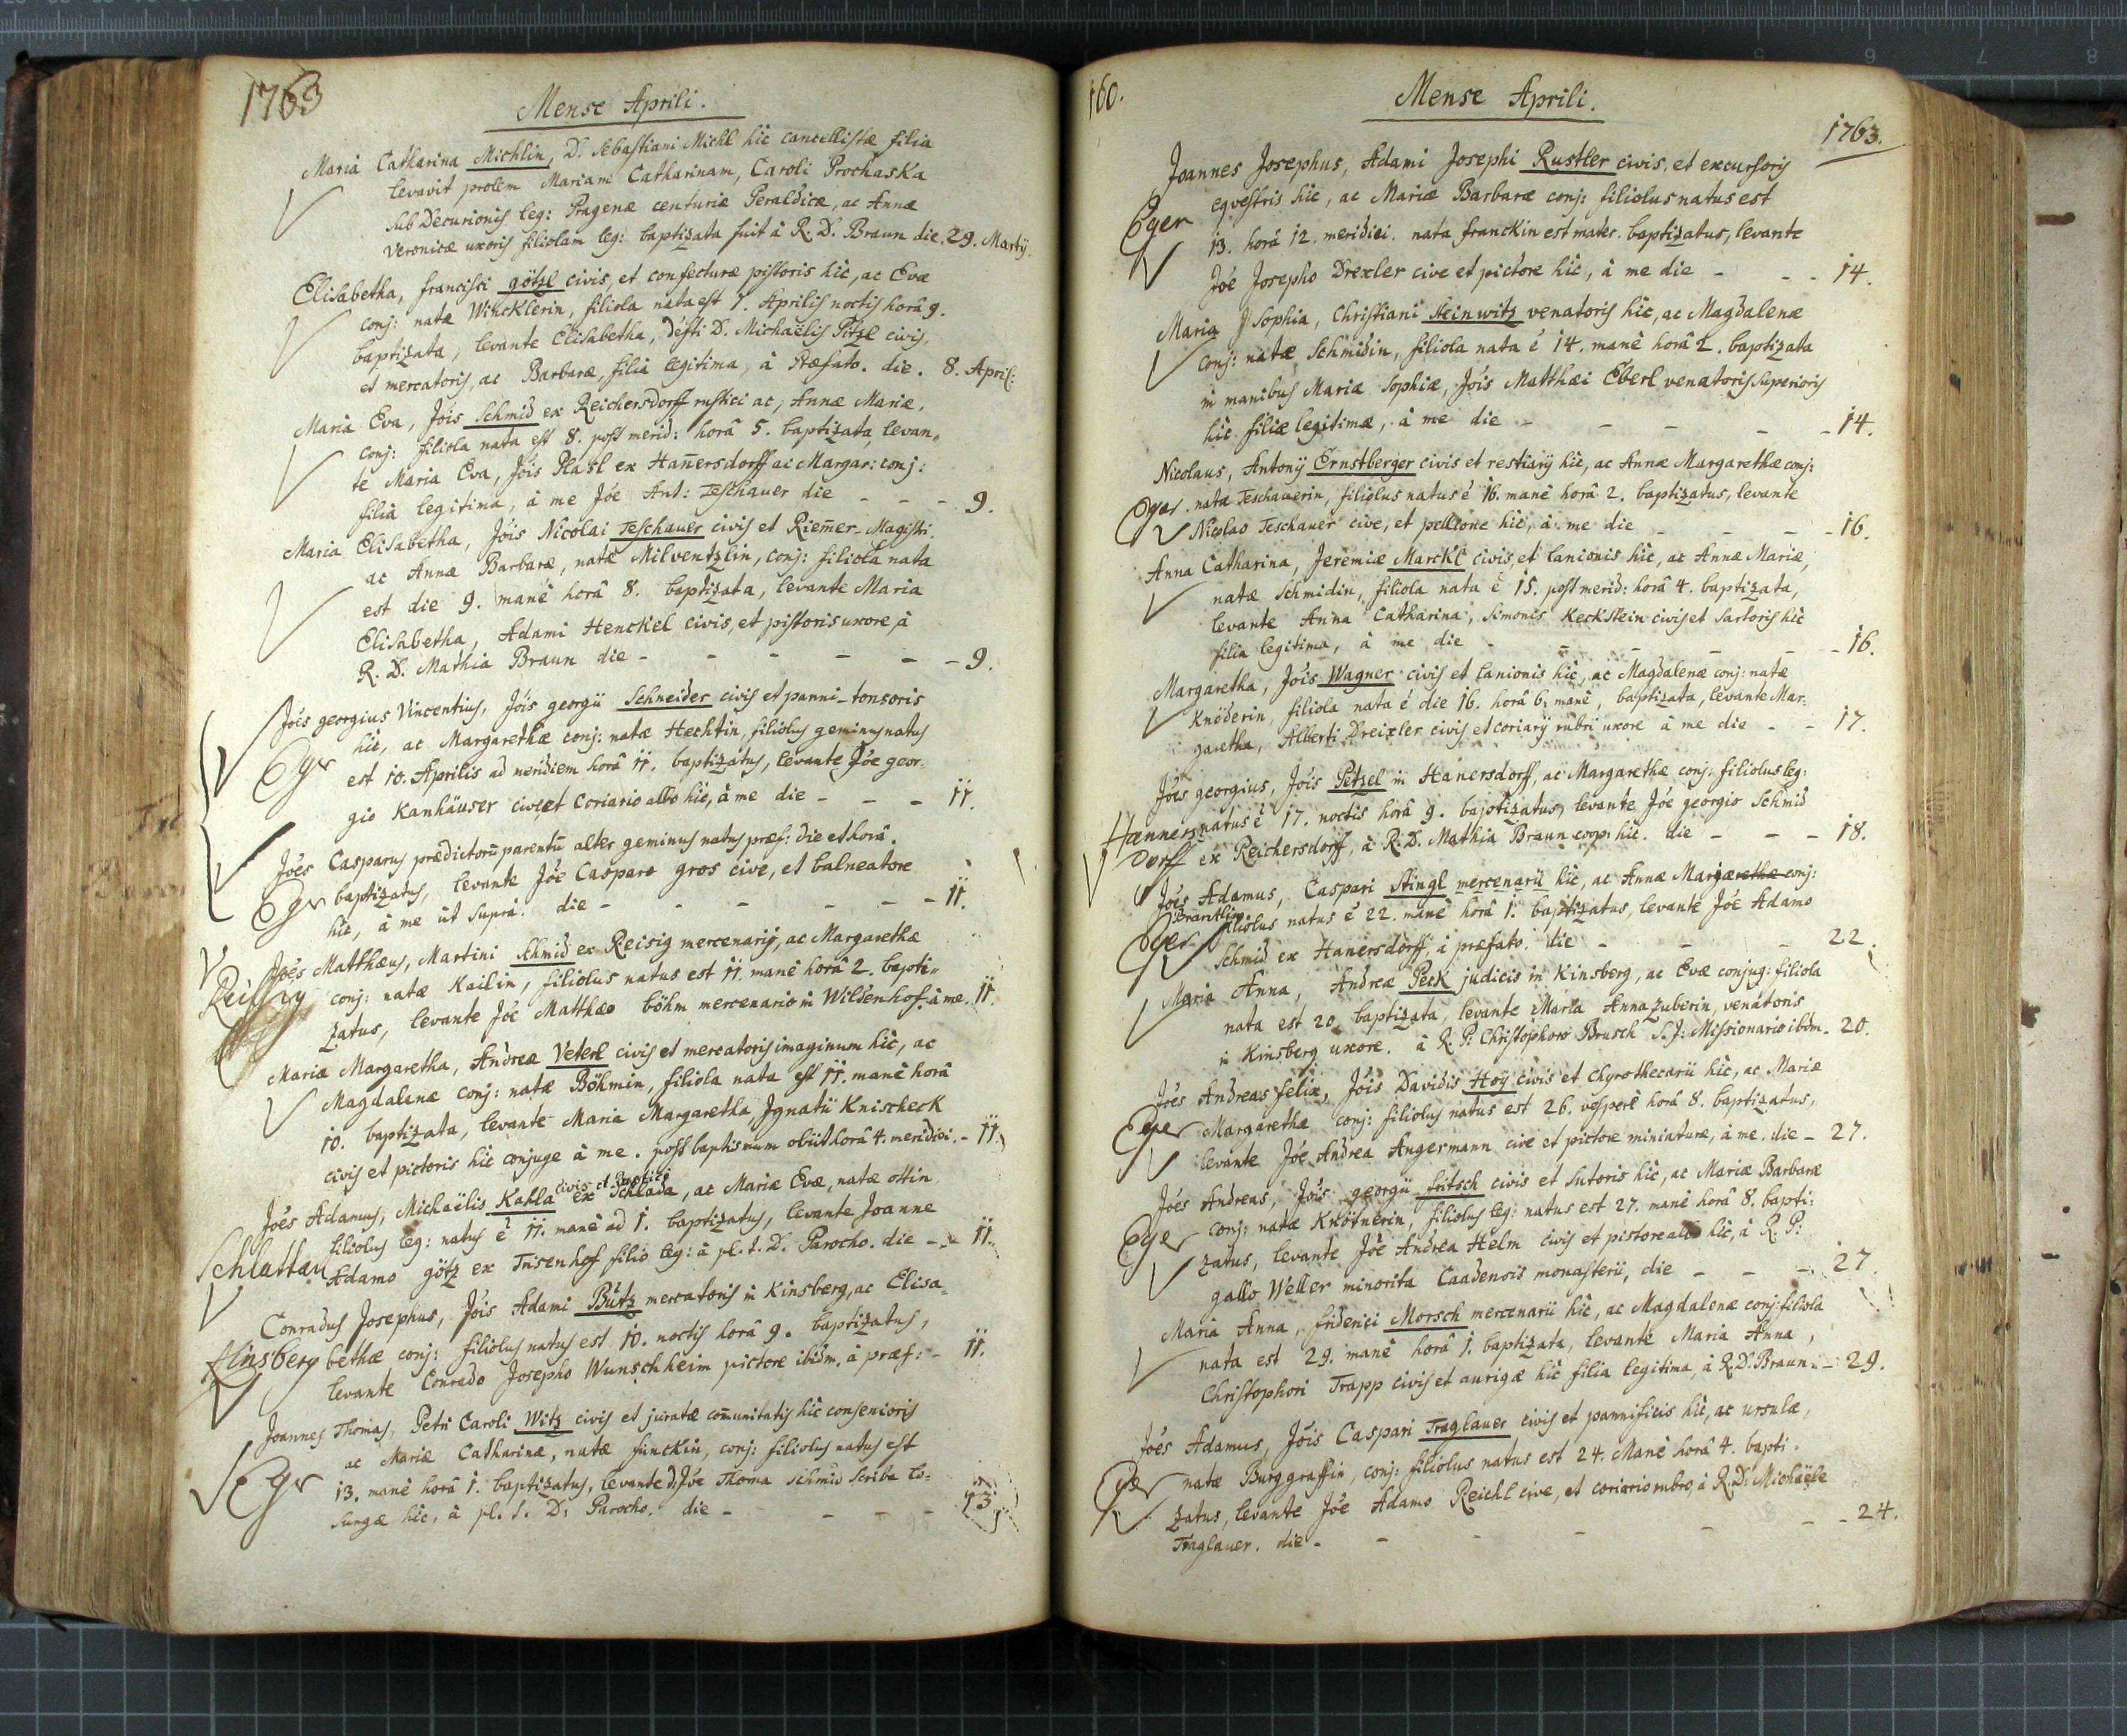 1763
Mense Aprili.
Maria Catharina Michlin, D. Sebastiani Michl hic cancellistæ filia
levavit prolem Mariam Catharinam, Caroli Prochaska
sub Decurionis leg: Pragenæ centuriæ Peraldicæ, ac Annæ
Veronicæ uxoris filiolam leg: baptizata fuit à R. D. Braun die. 29. Martij.
Elisabetha, francisci götzl civis, et confecturæ pistoris hic, ac Evæ
conj: natæ Wincklerin, filiola nata est 7. Aprilis noctis horâ 9.
baptizata, levante Elisabetha, défti D. Michaëlis Pitzl civis,
et mercatoris, ac Barbaræ, filia legitima, à Præfato. die. 8. April:
Maria Eva, Jóis Schmid ex Reichersdorff rustici ac, Annæ Mariæ,
conj: filiola nata est 8. post merid: horâ 5. baptizata, levan„
te Maria Eva, Jóis Plasl ex Hañersdorff ac Margar: conj:
filia legitima, à me Jóe Ant: Teschauer die - - - 9.
Maria Elisabetha, Jóis Nicolai Teschauer civis et Riem̃er-Magistri
ac Annæ Barbaræ, natæ Milventzlin, conj: filiola nata
est die 9. manè horâ 8. baptizata, levante Maria
Elisabetha, Adami Henckel civis, et pistoris uxore, à
R. D. Mathia Braun die - - - - - 9.
Jóes georgius Vincentius, Jóis georgii Schneider civis et panni-tonsoris
hic, ac Margarethæ conj: natæ Hechtin, filiolus geminus natus
Egr est 10. Aprilis ad meridiem horâ 11. baptizatus, levante Jóe geor-
gio Kanhäuser cive et Coriario albo hic, à me die - - - 11.
Jóes Casparus prædictorũ parentũ alter geminus natus præf: die et horâ.
Egr baptizatus, levante Jóe Casparo gros cive, et balneatore
hic, à me ut suprà. die - - - - - 11.
Jóes Matthæus, Martini Schmid ex Reisig mercenarij, ac Margarethæ
Reissig conj: natæ Kailin, filiolus natus est 11. manè horâ 2. bapti„
zatus, levante Jóe Matthæo böhm mercenario in Wildenhof. à me. 11.
Maria Margaretha, Andreæ Veterl civis et mercatoris imaginum hic, ac
Magdalenæ conj: natæ Böhmin, filiola nata est 11. manè horâ
10. baptizata, levante Maria Margaretha, Jgnatii Knischeck
civis et pictoris hic conjuge à me. post baptismum obiit horâ 4. meridiei. - 11.
civis et
Jóes Adamus, Michaëlis Kahla ex Schlada, ac Mariæ Evæ, natæ ottin
filiolus leg: natus è 11. manè ad 1. baptizatus, levante Joanne
Schlattau Adamo götz ex Trisenhof filio leg: à pl. t. D. Parocho. die - - 11.
Conradus Josephus, Jóis Adami Bütz mercatoris in Kinsberg, ac Elisa-
Kinsberg bethæ conj: filiolus natus est 10. noctis horâ 9. baptizatus,
levante Conrado Josepho Wunschheim pictore ibidm. à præf: - 11.
Joannes Thomas, Petri Caroli Witz civis et juratæ cõmunitatis hic consenioris
ac Mariæ Catharinæ, natæ funckin, conj: filiolus natus est
Egr 13. manè horâ 1. baptizatus, levante D. Jóe Thoma Schmid Scriba Lo-
sungæ hic, à pl. t. D. Parocho. die - - - - 13.
160.
Mense Aprili.
1763.
Joannes Josephus, Adami Josephi Rustler civis, et excursoris
Eger eqvestris hic, ac Mariæ Barbaræ conj: filiolus natus est
13. horâ 12. meridiei. nata franckin est mater. baptizatus, levante
Jóe Josepho Drexler cive et pictore hic, à me die - - - 14.
Maria Sophia, Christiani Steinwitz venatoris hic, ac Magdalenæ
conj: natæ Schmidin, filiola nata é 14. manè horâ 2. baptizata
in manibus Mariæ Sophiæ, Jóis Matthæi Eberl venatoris superioris
hic filiæ legitimæ, à me die - - - - - 14.
Nicolaus, Antonij Ernstberger civis et restiarij hic, ac Annæ Margarethæ conj:
Eger natæ Teschauerin, filiolus natus é 16. manè horâ 2. baptizatus, levante
Nicolao Teschauer cive, et pellione hic, à me die - - - - 16.
Anna Catharina, Jeremiæ Marckl civis, et lanionis hic, ac Annæ Mariæ,
natæ Schmidin, filiola nata é 15. post merid: horâ 4. baptizata,
levante Anna Catharina, Simonis Keckstein civis et sartoris hic
filia legitima, à me die - - - - - 16.
Margaretha, Jóis Wagner civis et lanionis hic, ac Magdalenæ conj: natæ
Knöderin, filiola nata é die 16. horâ 6. manè, baptizata, levante Mar-
garetha, Alberti Dreixler civis et coriarij rubri uxore à me die - - 17.
Jóes georgius, Jóis Petzel in Hanersdorff, ac Margarethæ conj: filiolus leg:
Hænners natus é 17. noctis horâ 9. baptizatus, levante Jóe georgio Schmid
dorff ex Reichersdorff, à R. D. Mathia Braun coop: hic. die - - - 18.
Jóes Adamus, Caspari Stingl mercenarii hic, ac Annæ Margarethæ conj:
Eger filiolus natus é 22. manè horâ 1. baptizatus, levante Jóe Adamo
Schmid ex Hanersdorff à præfato. die - - - 22.
Maria Anna, Andreæ Peck judicis in Kinsberg, ac Evæ conjug: filiola
nata est 20. baptizata, levante Maria Anna Zuberin, venatoris
in Kinsberg uxore. à R. P. Christophoro Brusch S. J: Missionario ibdm. 20.
Jóes Andreas felix, Jóis Davidis Hoÿ civis et chyrothecarii hic, ac Mariæ
Eger Margarethæ conj: filiolus natus est 26. vesperè horâ 8. baptizatus,
levante Jóe Andrea Angermann cive et pictore miniaturæ, à me. die - 27.
Jóes Andreas, Jóis georgii fritsch civis et sutoris hic, ac Mariæ Barbaræ
Eger conj: natæ Knötnerin, filiolus leg: natus est 27. manè horâ 8. bapti:
zatus, levante Jóe Andrea Helm civis et pistore hic, à R. P:
gallo Weller minorita Caadensis monasterii, die - - - 27.
Maria Anna, friderici Morsch mercenarii hic, ac Magdalenæ conj: filiola
nata est 29. manè horâ 1. baptizata, levante Maria Anna,
Christophori Trapp civis et aurigæ hic filia legitima, à R. D. Braun. - 29.
Jóes Adamus, Jóis Caspari Traglauer civis et pannificis hic, ac ursulæ,
Eger natæ Burggraffin, conj: filiolus natus est 24. Manè horâ 4. bapti-
zatus, levante Jóe Adamo Reichl cive, et coriario rubro, à R. D. Michaële
Traglauer. die - - - - - - 24.